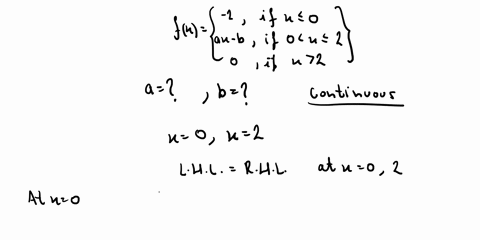 f(x)= { -2, if x ≤ 0
ax-b, if 0 < x ≤ 2
0, if x > 2 }
a=?, b=? continuous
x=0, x=2
L.H.L. = R.H.L. at x=0, 2
At x=0